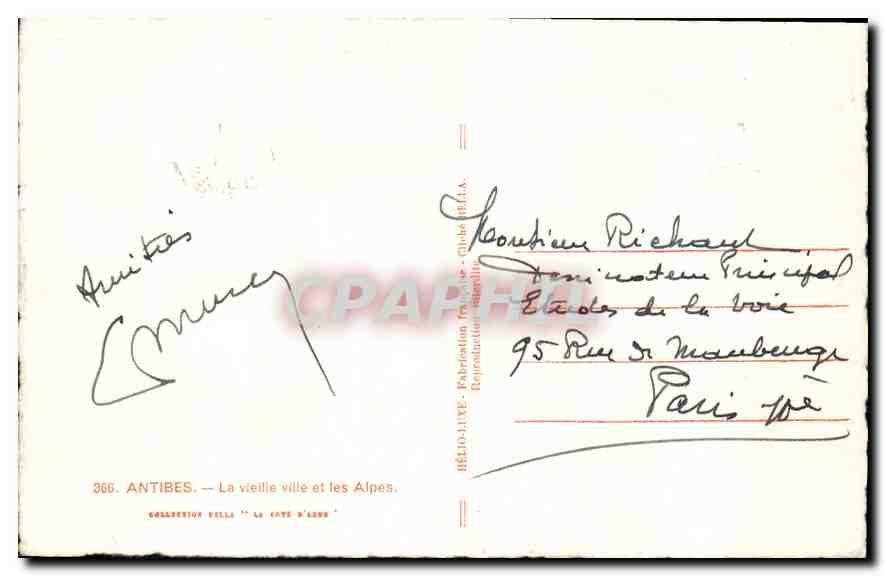 Amitiés
HÉLIO-LUXE - Fabrication française - Cliché RELLA.
Reproduction interdite
Monsieur Richard
Dessinateur Principal
Etudes de la Voie
95 Rue de Maubeuge
Paris Xè
CPARAMA
366. ANTIBES. — La vieille ville et les Alpes.
COLLECTION RELLA " LA COTE D'AZUR "